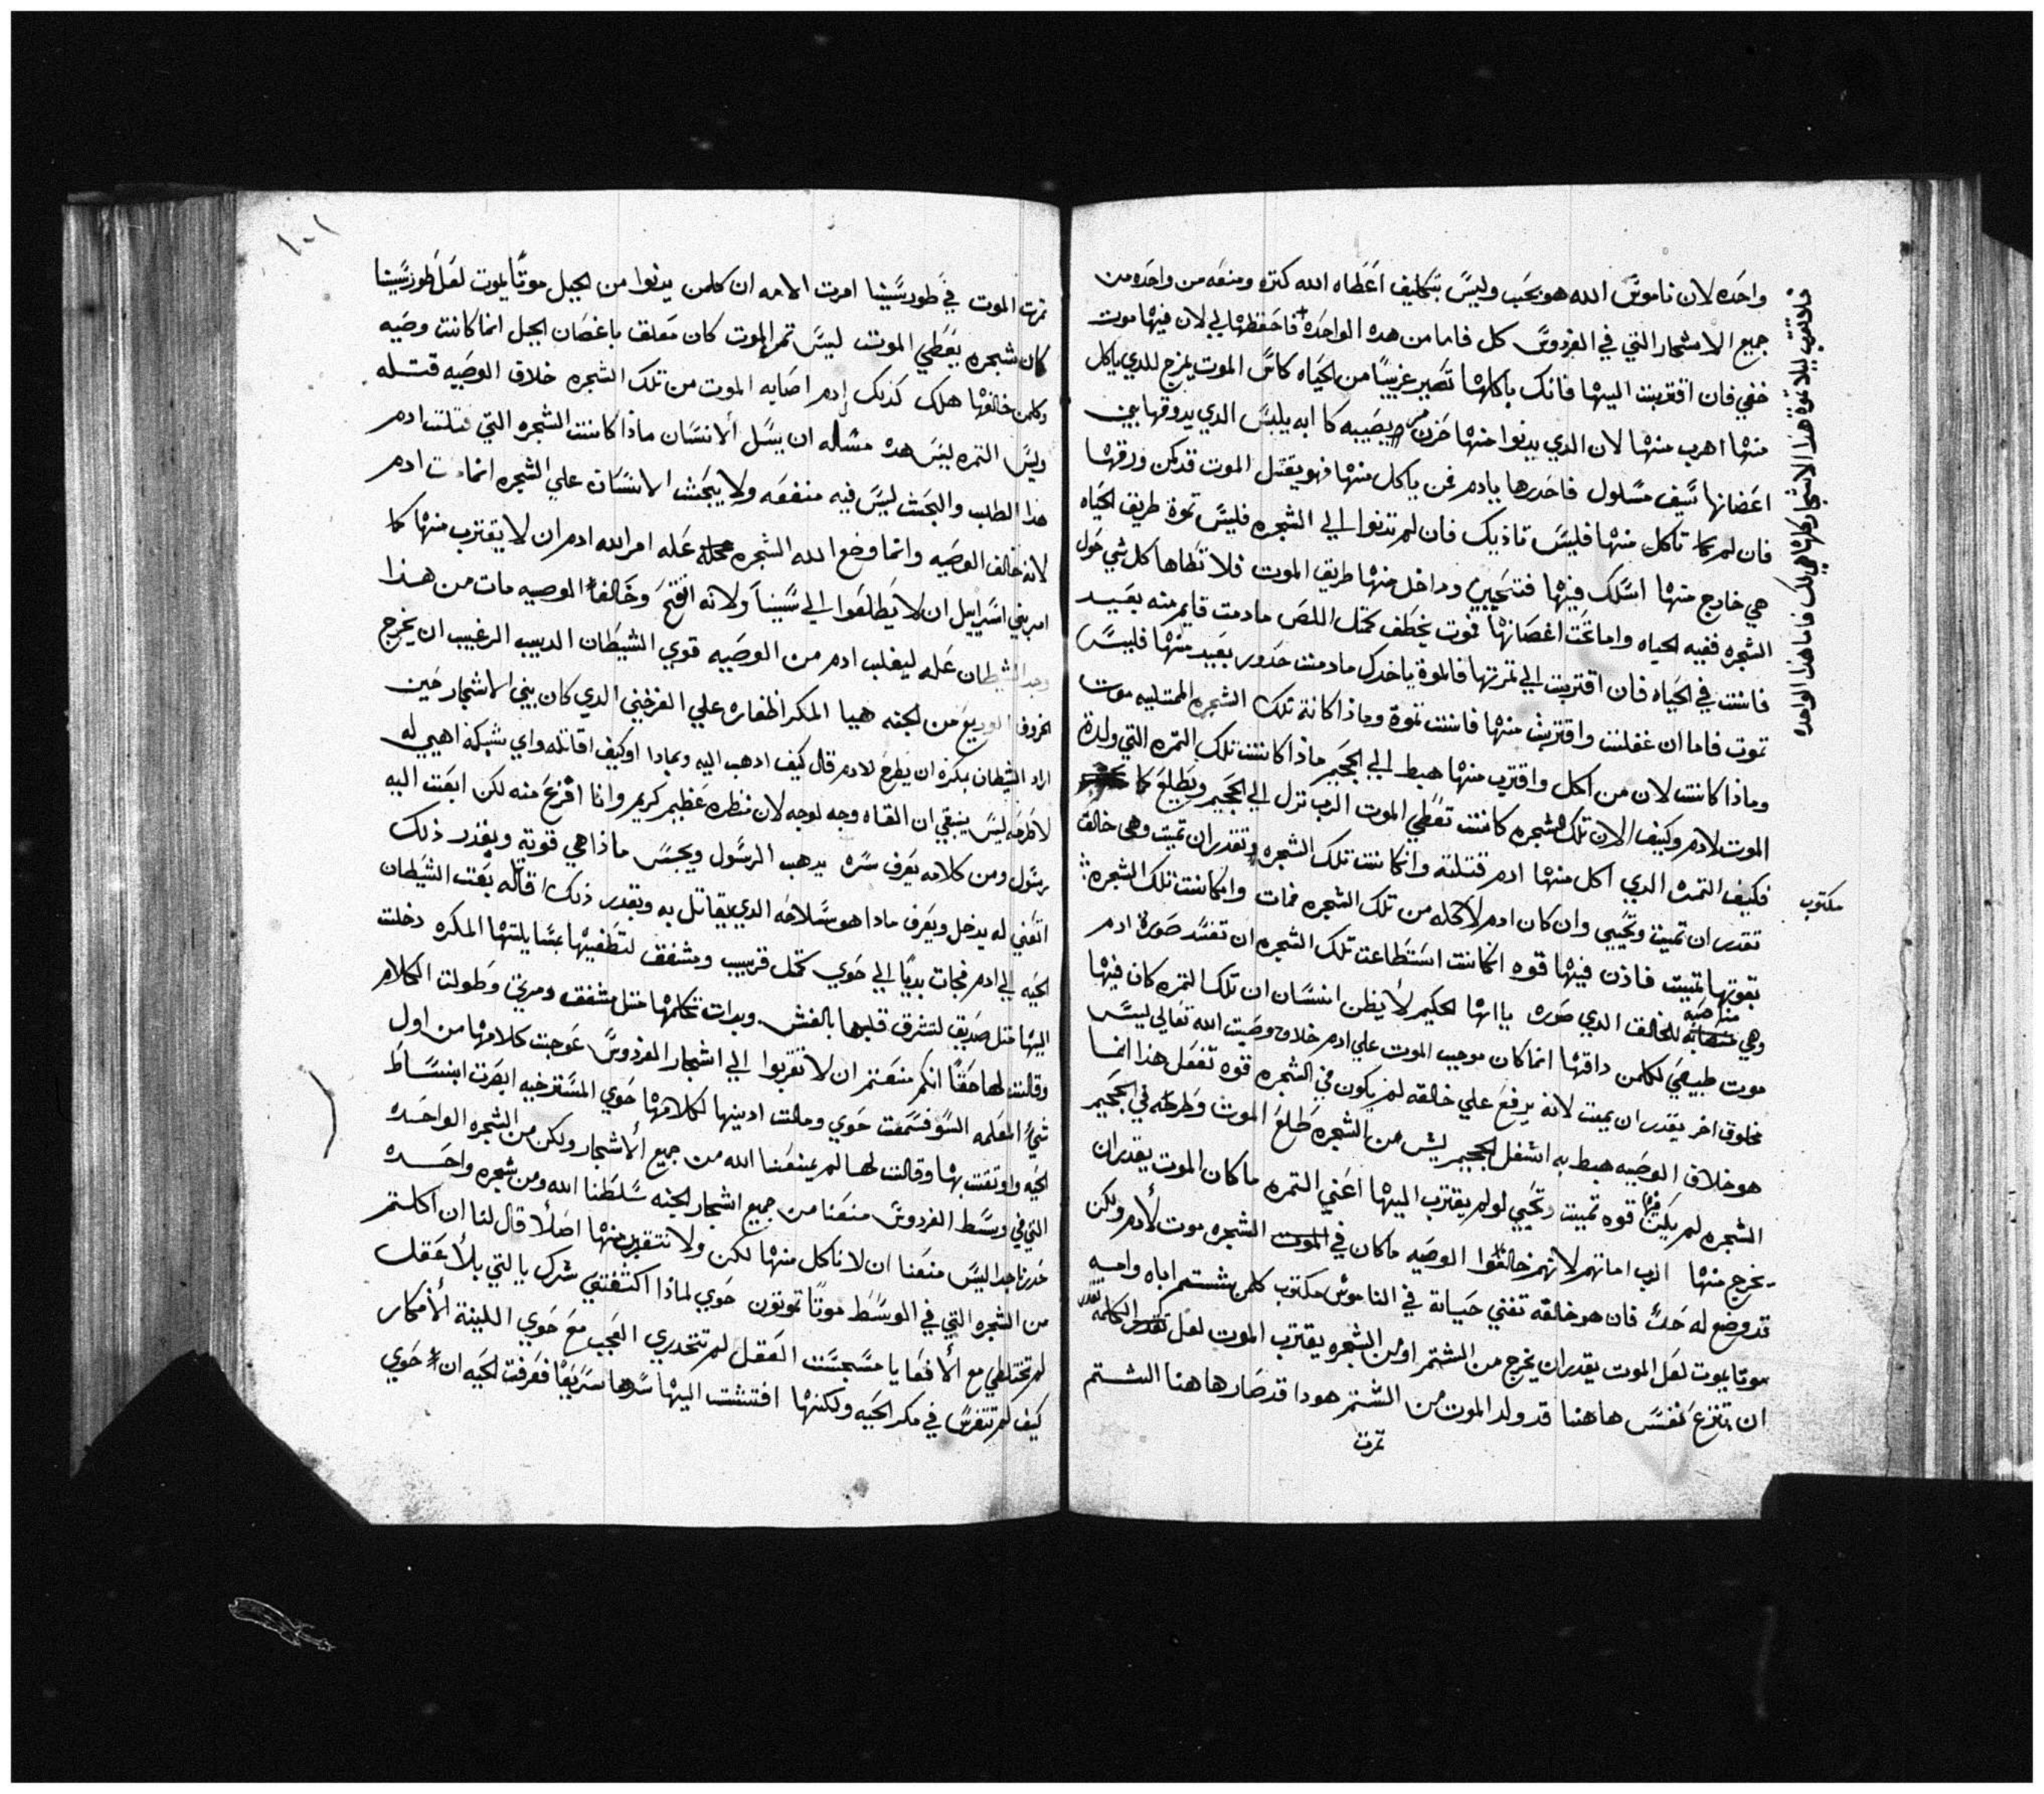 واحده لان ناموس الله هو بحب وليس بتكليف اعطاه الله كتره ومنعه من واحده من
جميع الاشجار التي في الفردوس كل فاما من هده الواحده فاحفظها لي لان فيها موت
خفي فان اقتربت اليها فانك باكلها تصير غريبا من الحياه كاس الموت يمزج للدي ياكل
منها اهرب منها لان الدي يدنوا منها حزن يصيبه كابه يلبس الدي يدوقها بين
اغصانها سيف مسلول فاحدرها يادم فمن ياكل منها فهو يقتل الموت قد كمن ورقها
فان لم تاكل منها فليس تاذيك فان لم تدنوا الي الشجره فليس تموة طريق الحياه
هي خارج منها اسلك فيها فتحيين وداخل منها طريق الموت فلا تطاها كل شي حول
الشجره ففيه الحياه واما تحت اغصانها فموت يخطف كمتل اللص مادمت قايم منه بعيد
فانت في الحياه فان اقتربت الي تمرتها فالموة ياخدك مادمت حدور بعيد منها فليس
تموت فاما ان غفلت واقتربت منها فانت تموة وماذا كانة تلك الشجره الممتليه موت
وماذا كانت لان من اكل واقترب منها هبط الي الجحيم ماذا كانت تلك التمره التي ولدة
الموت لادم وكيف الان تلك الشجره كانت تعطي الموت الرب نزل الي الجحيم ويطلع كما مكتوب
فكيف التمت الدي اكل منها ادم قتلته وانكانت تلك الشجره تقدر ان تميت وهي خالق
تقدر ان تميت وتحيي وان كان ادم لاكله من تلك الشجره فمات وانكانت تلك الشجره
بقوتها تميت فاذن فيها قوه انكانت استطاعت تلك الشجره ان تفسد صورة ادم
وهي مضاهيه للخالق الدي صوره ياايها الحكيم لا يظن انسان ان تلك التمره كان فيها
موت طبيعي لكلمن داقها انما كان موجب الموت علي ادم خلاف وصيت الله تعالي ليس
مخلوق اخر يقدر ان يميت لانه يرفع علي خالقه لم يكون في الشجره قوه تفعل هذا انما
هو خلاف الوصيه هبط به اسفل الجحيم ليس من الشجره طلع الموت وطرحه في الجحيم
الشجره لم يكن فيها قوه تميت وتحيي لو لم يقترب اليها اعني التمره ما كان الموت يقدر ان
يخرج منها الرب اماتهم لانهم خالفوا الوصيه ما كان في الشجره موت لادم ولكن
قد وضع له حد فان هو خالفه تفني حياته في الناموس مكتوب كلمن يشتم اباه وامه
موتا يموت لعل الموت يقدر ان يخرج من الشتم او من الشجره يقترب الموت لعل تقدر الكلمه
ان تنزع نفس هاهنا قد ولد الموت من الشتم هودا قد صار هاهنا الشتم
تمرت
فلا تقترب ليلا تموة هذا الاشجار كلها هي لك فاما هذا الواحده
مكتوب
١٠١
تمرت الموت في طور سينا امرت الامه ان كلمن يدنوا من الجبل موتا يموت لعل طور سينا
كان شجره يعطي الموت ليس تمر الموت كان معلق باغصان الجبل انما كانت وصيه
وكلمن خالفها هلك كذلك ادم اصابه الموت من تلك الشجره خلاف الوصيه قتله
وليس التمره ليس هده مساله ان يسل الانسان ماذا كانت الشجره التي قتلت ادم
هذا الطلب والبحث ليس فيه منفعه ولا يبحث الانسان علي الشجره انما مات ادم
لانه خالف الوصيه وانما وضع الله الشجره عله امر الله ادم ان لا يقترب منها كما
امر بني اسراييل ان لا يطلعوا الي سينا ولانه افتح وخالف الوصيه مات من هذا
وجد الشيطان عله ليغلب ادم من الوصيه قوي الشيطان الديب الرغيب ان يخرج
الخروف الوديع من الجنه هيا المكر اظفاره علي الفرخين الدي كان بين الاشجار حين
اراد الشيطان بمكره ان يطرح لادم قال كيف ادهب اليه وبمادا او كيف اقاتله واي شبكه اهيي له
لاطرحه ليس ينبغي ان القاه وجه لوجه لان منظره عظيم كريم وانا افزع منه لكن ابعت اليه
رسول ومن كلامه يعرف سره يدهب الرسول ويجسس ماذا هي قوته وبقدر ذلك
اتغني له يدخل ويعرف مادا هو سلاحه الدي يقاتل به وبقدر ذلك اقاتله بعت الشيطان
الحيه الي ادم فجات بديا الي حوي كمتل قريب ومشفق لتطغيها بمسايلتها المكره دخلت
اليها متل صديق لتشرق قلبها بالغش وبدات تكلمها متل مشفق ومربي وطولت الكلام
وقالت لها حقا انكم منعتم ان لا تقربوا الي اشجار الفردوس عوجت كلامها من اول
شي المعلمه السو فسمعت حوي ومالت ادينها لكلامها حوي المسترخيه ابصرت ابنساط
الحيه واوتقت بها وقالت لها لم يمنعنا الله من جميع الاشجار ولكن من الشجره الواحده
التي في وسط الفردوس منعنا من جميع اشجار الجنه سلطنا الله ومن شجره واحده
حدرنا جدا ليس منعنا ان لا ناكل منها لكن ولا نتقرب منها اصلا قال لنا ان اكلتم
من الشجره التي في الوسط موتا تموتون حوي لماذا اكشفتي سرك يا التي بلا عقل
لم تختلطي مع الافعا يا مسجست العقل لم تتحدري العجب مع حوي اللينة الافكار
كيف لم تتفرس في مكر الحيه ولكنها افتشت اليها سرها سريعا فعرفت الحيه ان حوي